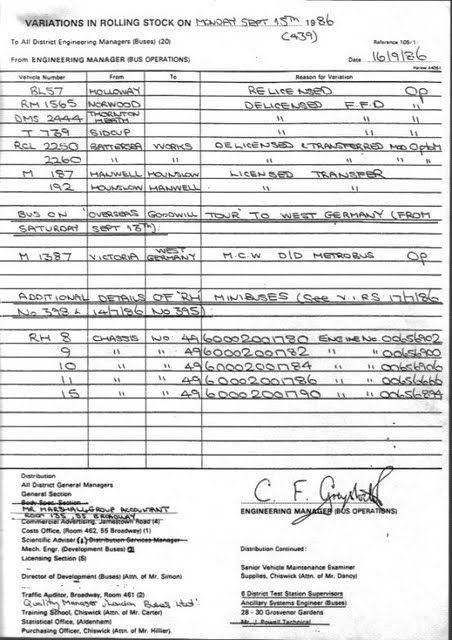 VARIATIONS IN ROLLING STOCK ON MONDAY SEPT 15TH 1986
(439)
To All District Engineering Managers (Buses) (20)
Reference 105/1
From ENGINEERING MANAGER (BUS OPERATIONS)
Date 16/9/86
Vehicle Number From To Reason for Variation
BL57 HOLLOWAY RELICENSED OP
RM 1565 NORWOOD DELICENSED F.F.D "
DMS 2444 THORNTON HEATH " " "
T 739 SIDCUP " " "
RCL 2250 BATTERSEA WORKS DELICENSED & TRANSFERRED
2260 " " " " "
M 187 HANWELL HOUNSLOW LICENSED TRANSFER
192 HOUNSLOW HANWELL " "
BUS ON 'OVERSEAS GOODWILL TOUR' TO WEST GERMANY (FROM
SATURDAY SEPT 13TH).
M 1387 VICTORIA WEST GERMANY M.C.W D/D METROBUS OP
ADDITIONAL DETAILS OF 'RH' MINIBUSES (See V.I.RS 17/7/86
No 398 & 14/7/86 No 395)
RH 8 CHASSIS NO: 4960002001780 ENGINE NO. 00656902
9 " " 4960002001782 " " 00656900
10 " " 4960002001784 " " 00656906
11 " " 4960002001786 " " 00656666
15 " " 4960002001790 " " 00656894
Distribution
All District General Managers
General Section
Body Spec. Section
MR MARSHALL GROUP ACCOUNTANT
ROOM 135, 55 BROADWAY
Commercial Advertising, Jamestown Road (4)
Costs Office, (Room 462, 55 Broadway) (1)
Scientific Adviser (1) Distribution Services Manager
Mech. Engr. (Development Buses) (2)
Licensing Section (5)
Director of Development (Buses) (Attn. of Mr. Simon)
Traffic Auditor, Broadway, Room 461 (2)
Quality Manager London Buses Ltd
Training School, Chiswick (Attn. of Mr. Carter)
Statistical Office, (Aldenham)
Purchasing Officer, Chiswick (Attn. of Mr. Hillier).
C. F. Greystock
ENGINEERING MANAGER (BUS OPERATIONS)
Distribution Continued:
Senior Vehicle Maintenance Examiner
Supplies, Chiswick (Attn. of Mr. Dancy)
6 District Test Station Supervisors
Ancillary Systems Engineer (Buses)
28 - 30 Grosvenor Gardens
Mr. J Powell Technical